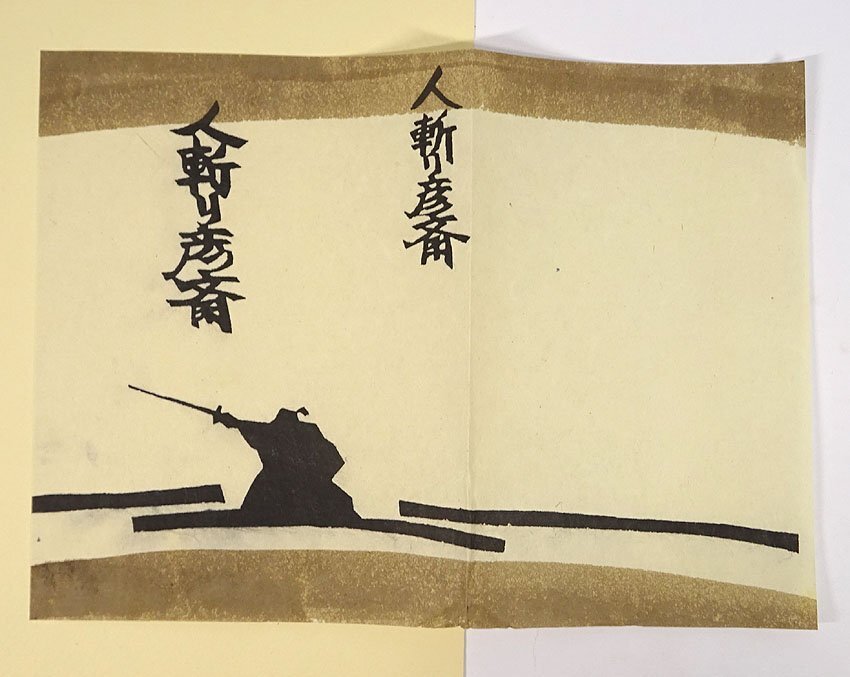 人斬り彦斎
人斬り彦斎